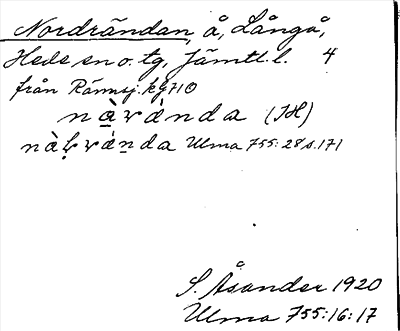 Nordrändan, å, Långå,
Hede sn o. tg, Jämtl. l. 4
från Rännsj. kg 710
nàvánda (JH)
Ulma 755:28 s. 171
S. Åsander 1920
Ulma 755:16:17